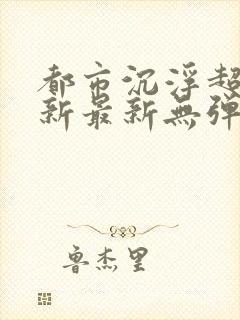 都市沉浮超
新最新無弹
鲁杰里